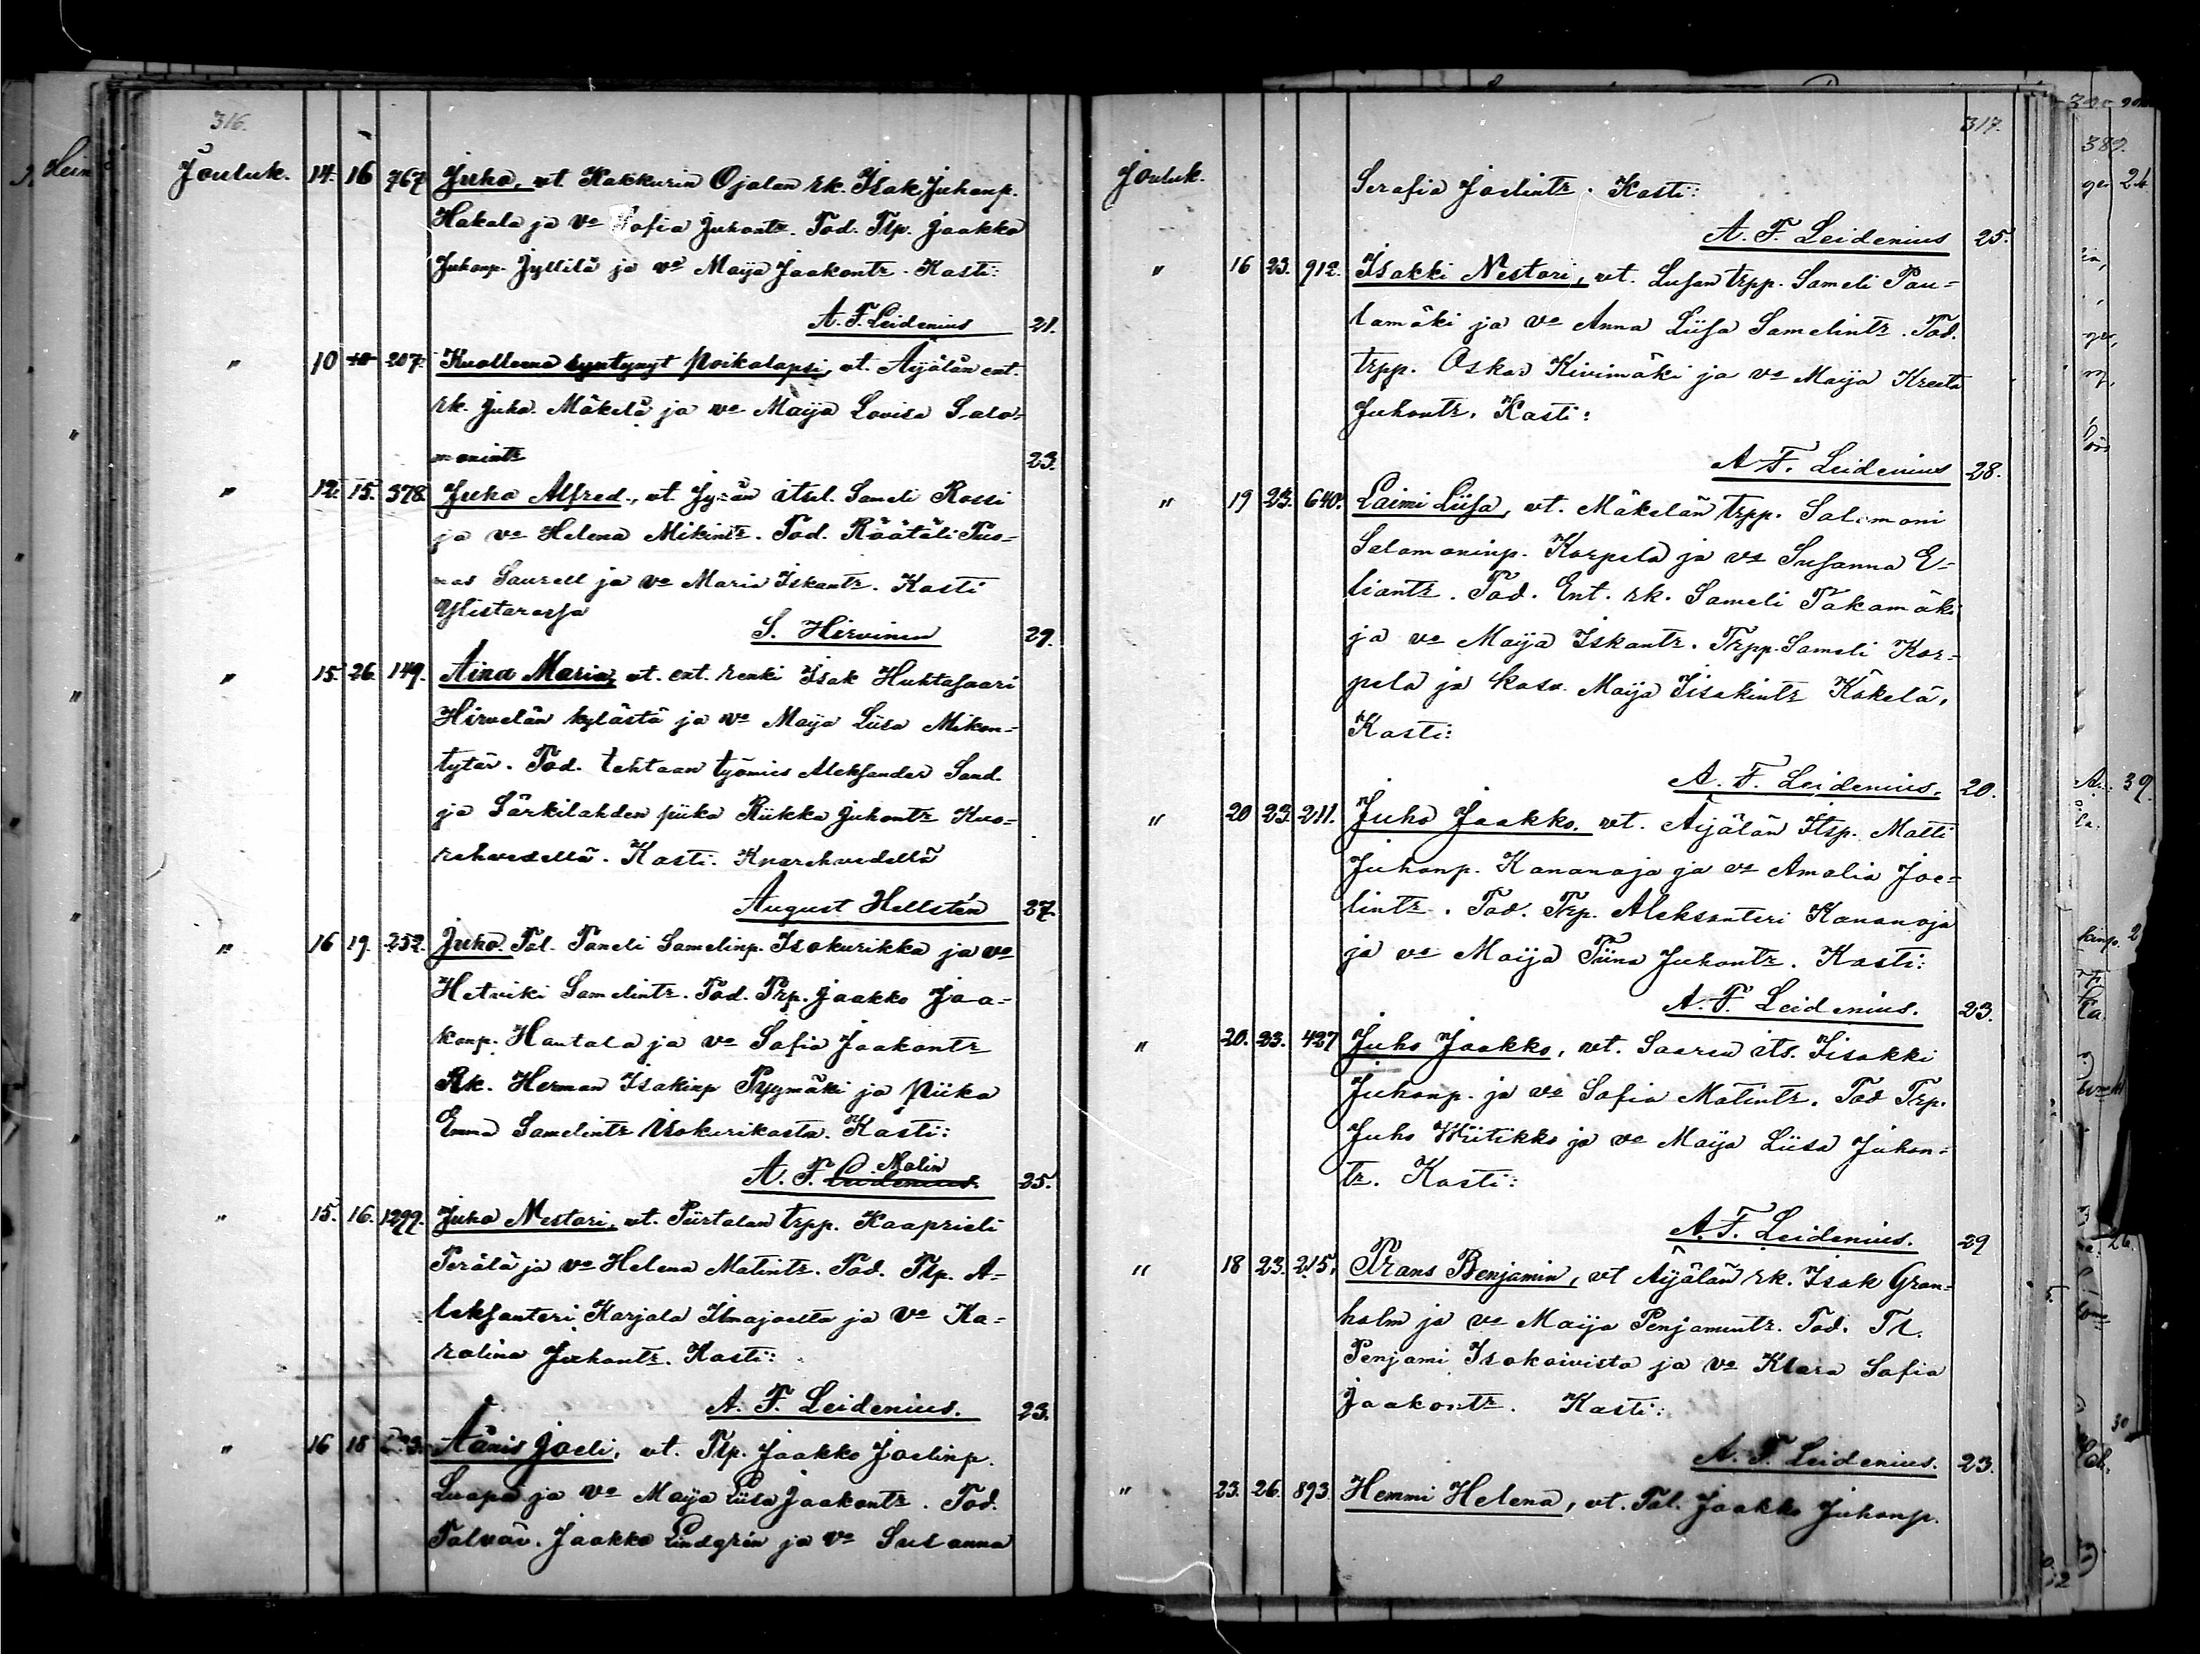 316.
Jouluk. 14. 16 767 Juho, vt. Kakkurin Ojalan rk. Isak Juhonp.
Hakala ja vo Sofia Juhontr. Tod. Tlp. Jaakko
Juhonp. Jyllilä ja vo Maija Jaakontr. Kasti:
A. F. Leidenius 21.
" 10 10 207. Kuolleena syntynyt poikalapsi, vt. Äijälän ent.
rk. Juho Mäkelä ja vo Maija Lovisa Salo-
monintr 23.
" 12. 15. 378. Juho Alfred, vt. itsel. Sameli Rossi
ja vo Helena Mikintr. Tod. Räätäli Tuo-
mas Saurell ja vo Maria Iskantr. Kasti
Ylistarossa
S. Hirvinen 29.
" 15. 26. 149. Aina Maria, vt. ent. renki Isak Huhtasaari
Hirvelän kylästä ja vo Maija Liisa Mikon-
tytär. Tod. tehtaan työmies Aleksander Sand
ja Särkilahden piika Riikka Juhontr Kuo-
rehvedellä. Kasti. Kuorehvedellä
August Hellstén 27.
" 16 19. 252. Juho. Tal. Taneli Samelinp. Isokurikka ja vo
Hetviki Samelintr. Tod. Trp. Jaakko Jaa-
konp. Hautala ja vo Sofia Jaakontr
Rk. Herman Isakinp Pyymäki ja Piika
Emma Samelintr Isokurikasta. Kasti:
Malin
A. F. Leidenius. 25.
" 15. 16. 1299. Juho Nestari, vt. Piirtolan trpp. Kaaprieli
Perälä ja vo Helena Matintr. Tod. Tlp. A-
leksanteri Karjala Ilmajoelta ja vo Ka-
rolina Juhontr. Kasti:
A. F. Leidenius. 23.
" 16 18 Äänis Joeli, vt. Tlp. Jaakko Joelinp.
Luopa ja vo Maija Liisa Jaakontr. Tod.
Talvää. Jaakko Lindgrén ja vo Susanna
317.
Jouluk. Serafia Joelintr. Kasti:
A. F. Leidenius 25.
" 16 23. 912. Isakki Nestori, vt. Lusan trpp. Sameli Pau-
lamäki ja vo Anna Liisa Samelintr. Tod.
trpp. Oskar Kivimäki ja vo Maija Kreeta
Juhontr. Kasti:
A. F. Leidenius 28.
" 19 23. 640. Laimi Liisa, vt. Mäkelän trpp. Salomoni
Salamoninp. Korpela ja vo Susanna E-
liantr. Tod. Ent. rk. Sameli Takamäki
ja vo Maija Iskantr. Trpp. Sameli Kor-
pela ja kasv. Maija Iisakintr Käkelä.
Kasti:
A. F. Leidenius. 20.
" 20 23. 211. Juho Jaakko. vt. Äijälän Itsp. Matti
Juhonp. Kananoja ja vo Amalia Joe-
lintr. Tod. Trp. Aleksanteri Kananoja
ja vo Maija Tiina Juhontr. Kasti:
A. F. Leidenius. 23.
" 20. 23. 427 Juho Jaakko, vt. Saaren its. Iisakki
Juhonp. ja vo Sofia Matintr. Tod Trp.
Juho Wiitikko ja vo Maija Liisa Juhon-
tr. Kasti:
A. F. Leidenius. 29
" 18 23. 215. Frans Benjamin, vt Äijälän rk. Isak Gran-
holm ja vo Maija Penjamintr. Tod. Tl.
Penjami Isokoivisto ja vo Klara Sofia
Jaakontr. Kasti:
A. F. Leidenius. 23.
" 23. 26. 893. Hemmi Helena, vt. Tal. Jaakko Juhonp.